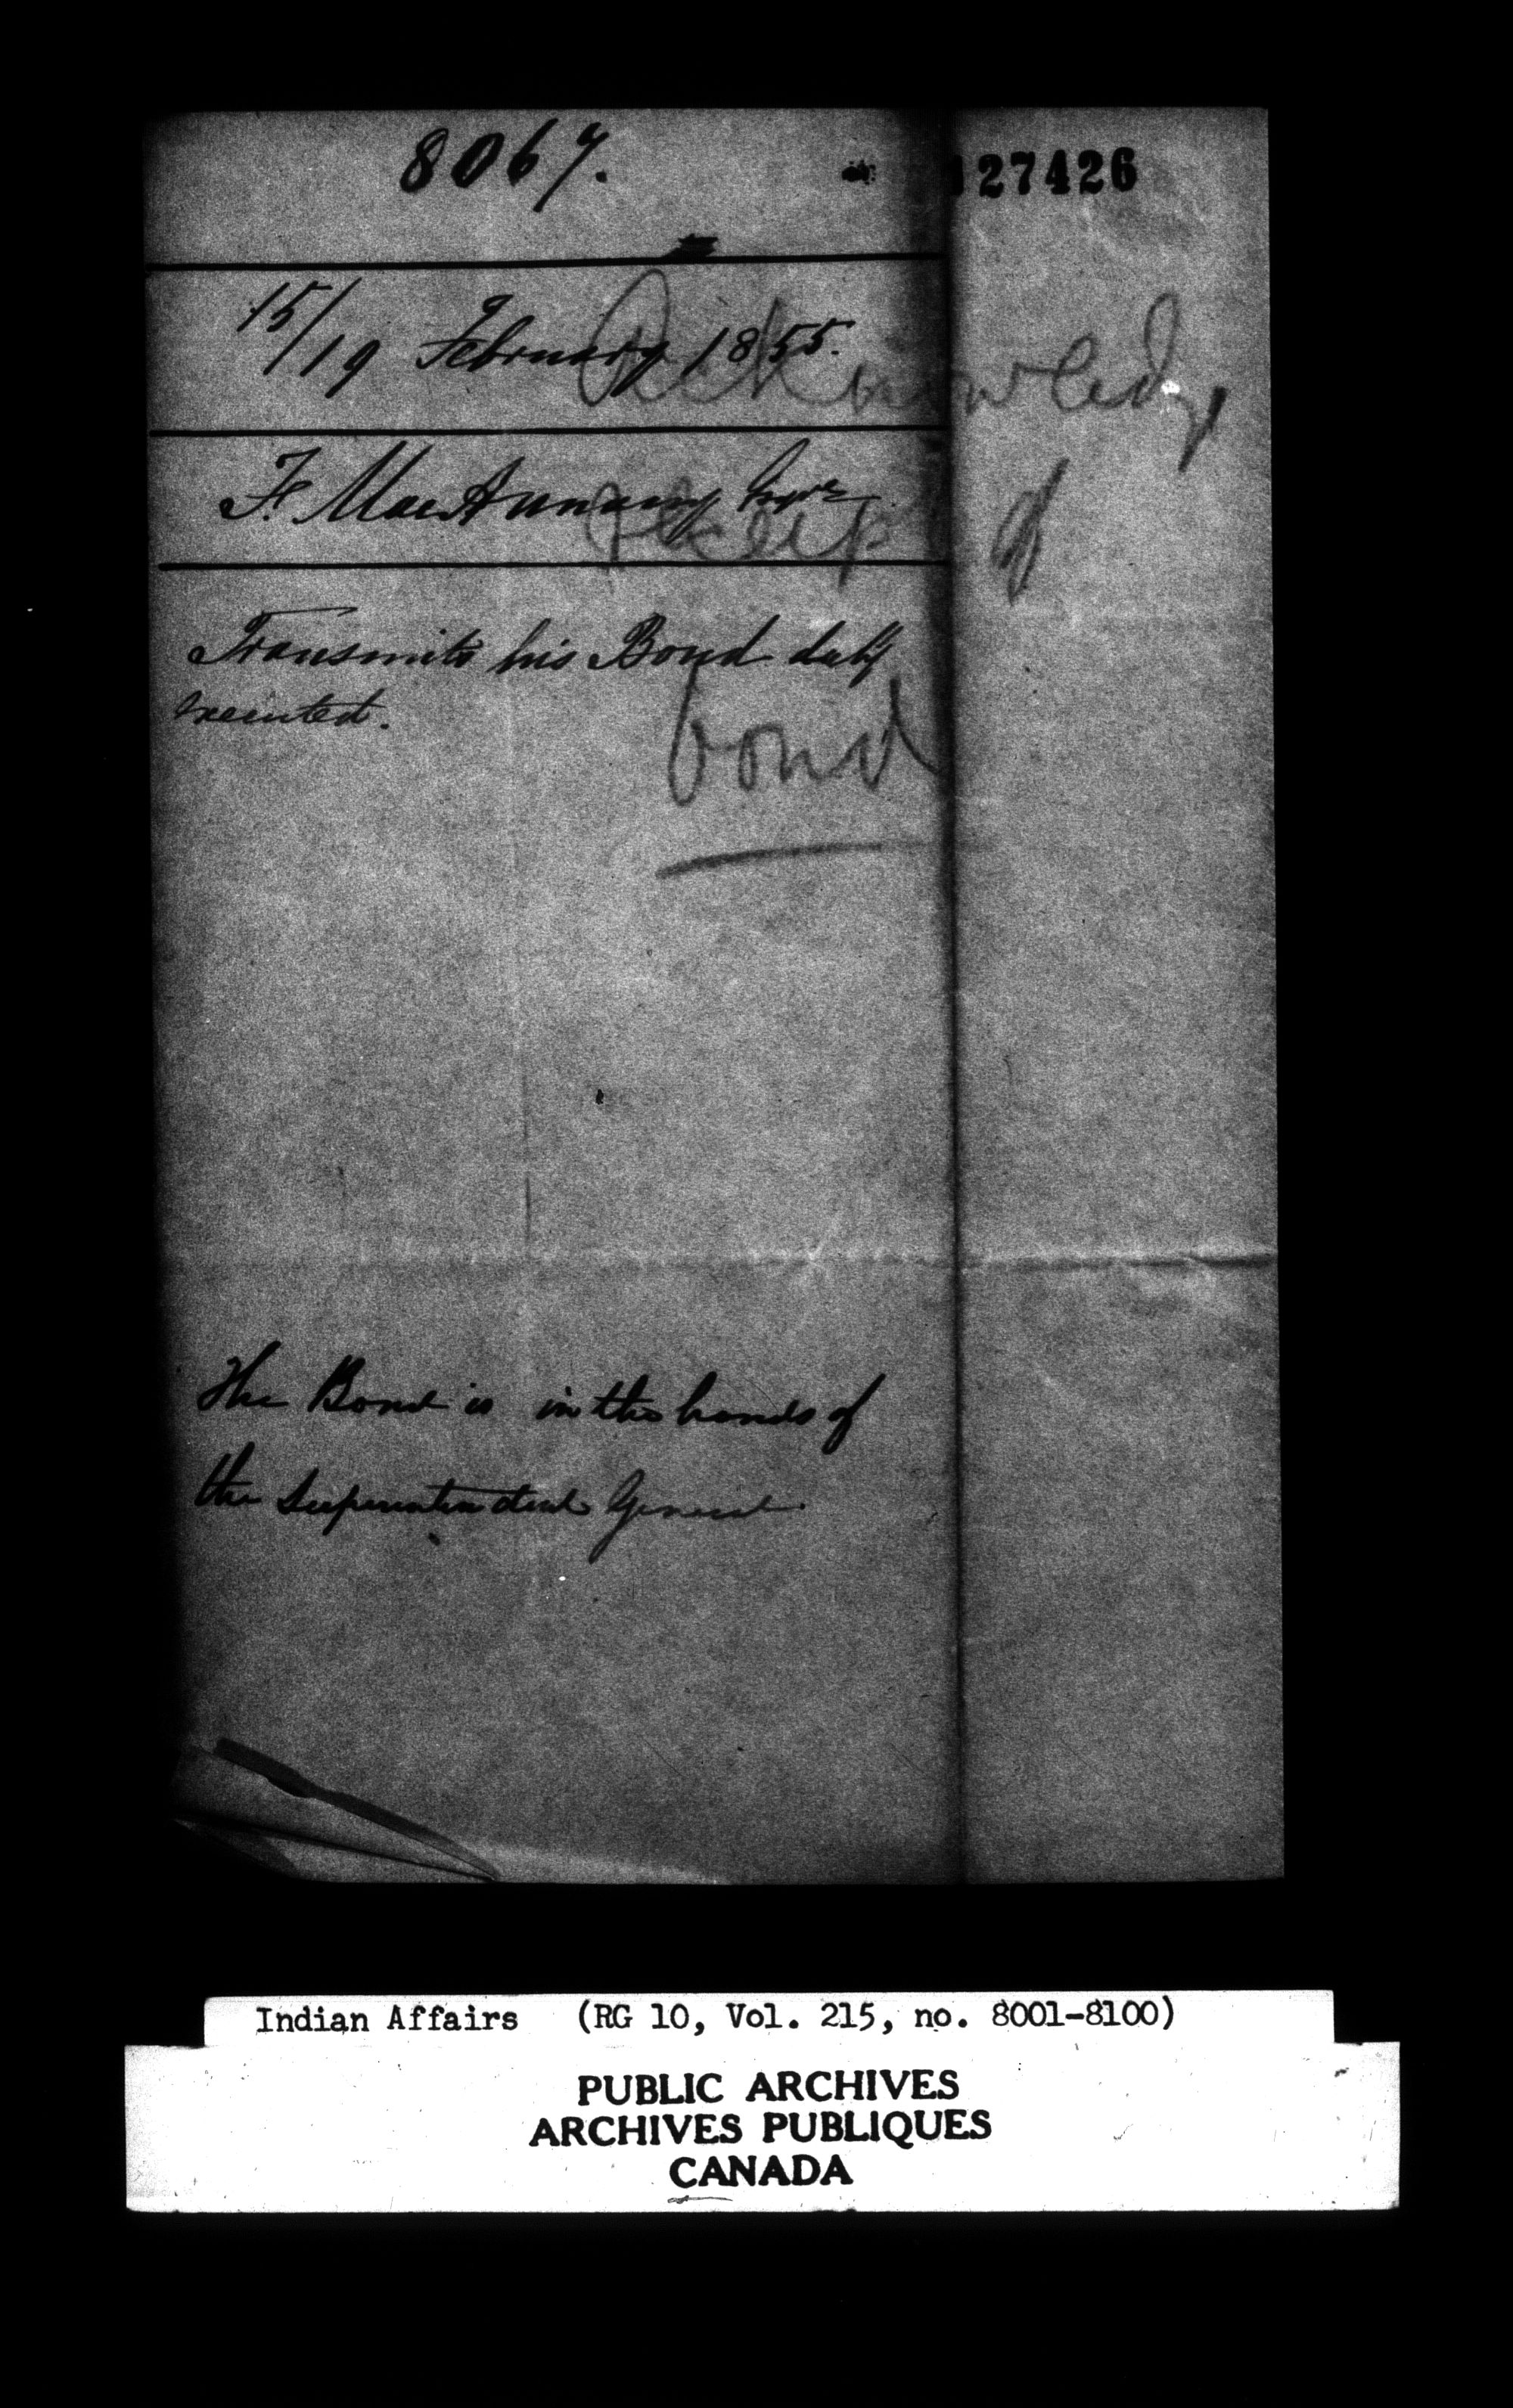 8067.
127426
15/19 February 1855.
Acknowledge
F. MacAnnany Esqre
Receipt of
Transmits his Bond duly
executed.
bond
The Bond is in the hands of
the Superintendent General.
Indian Affairs (RG 10, Vol. 215, no. 8001-8100)
PUBLIC ARCHIVES
ARCHIVES PUBLIQUES
CANADA